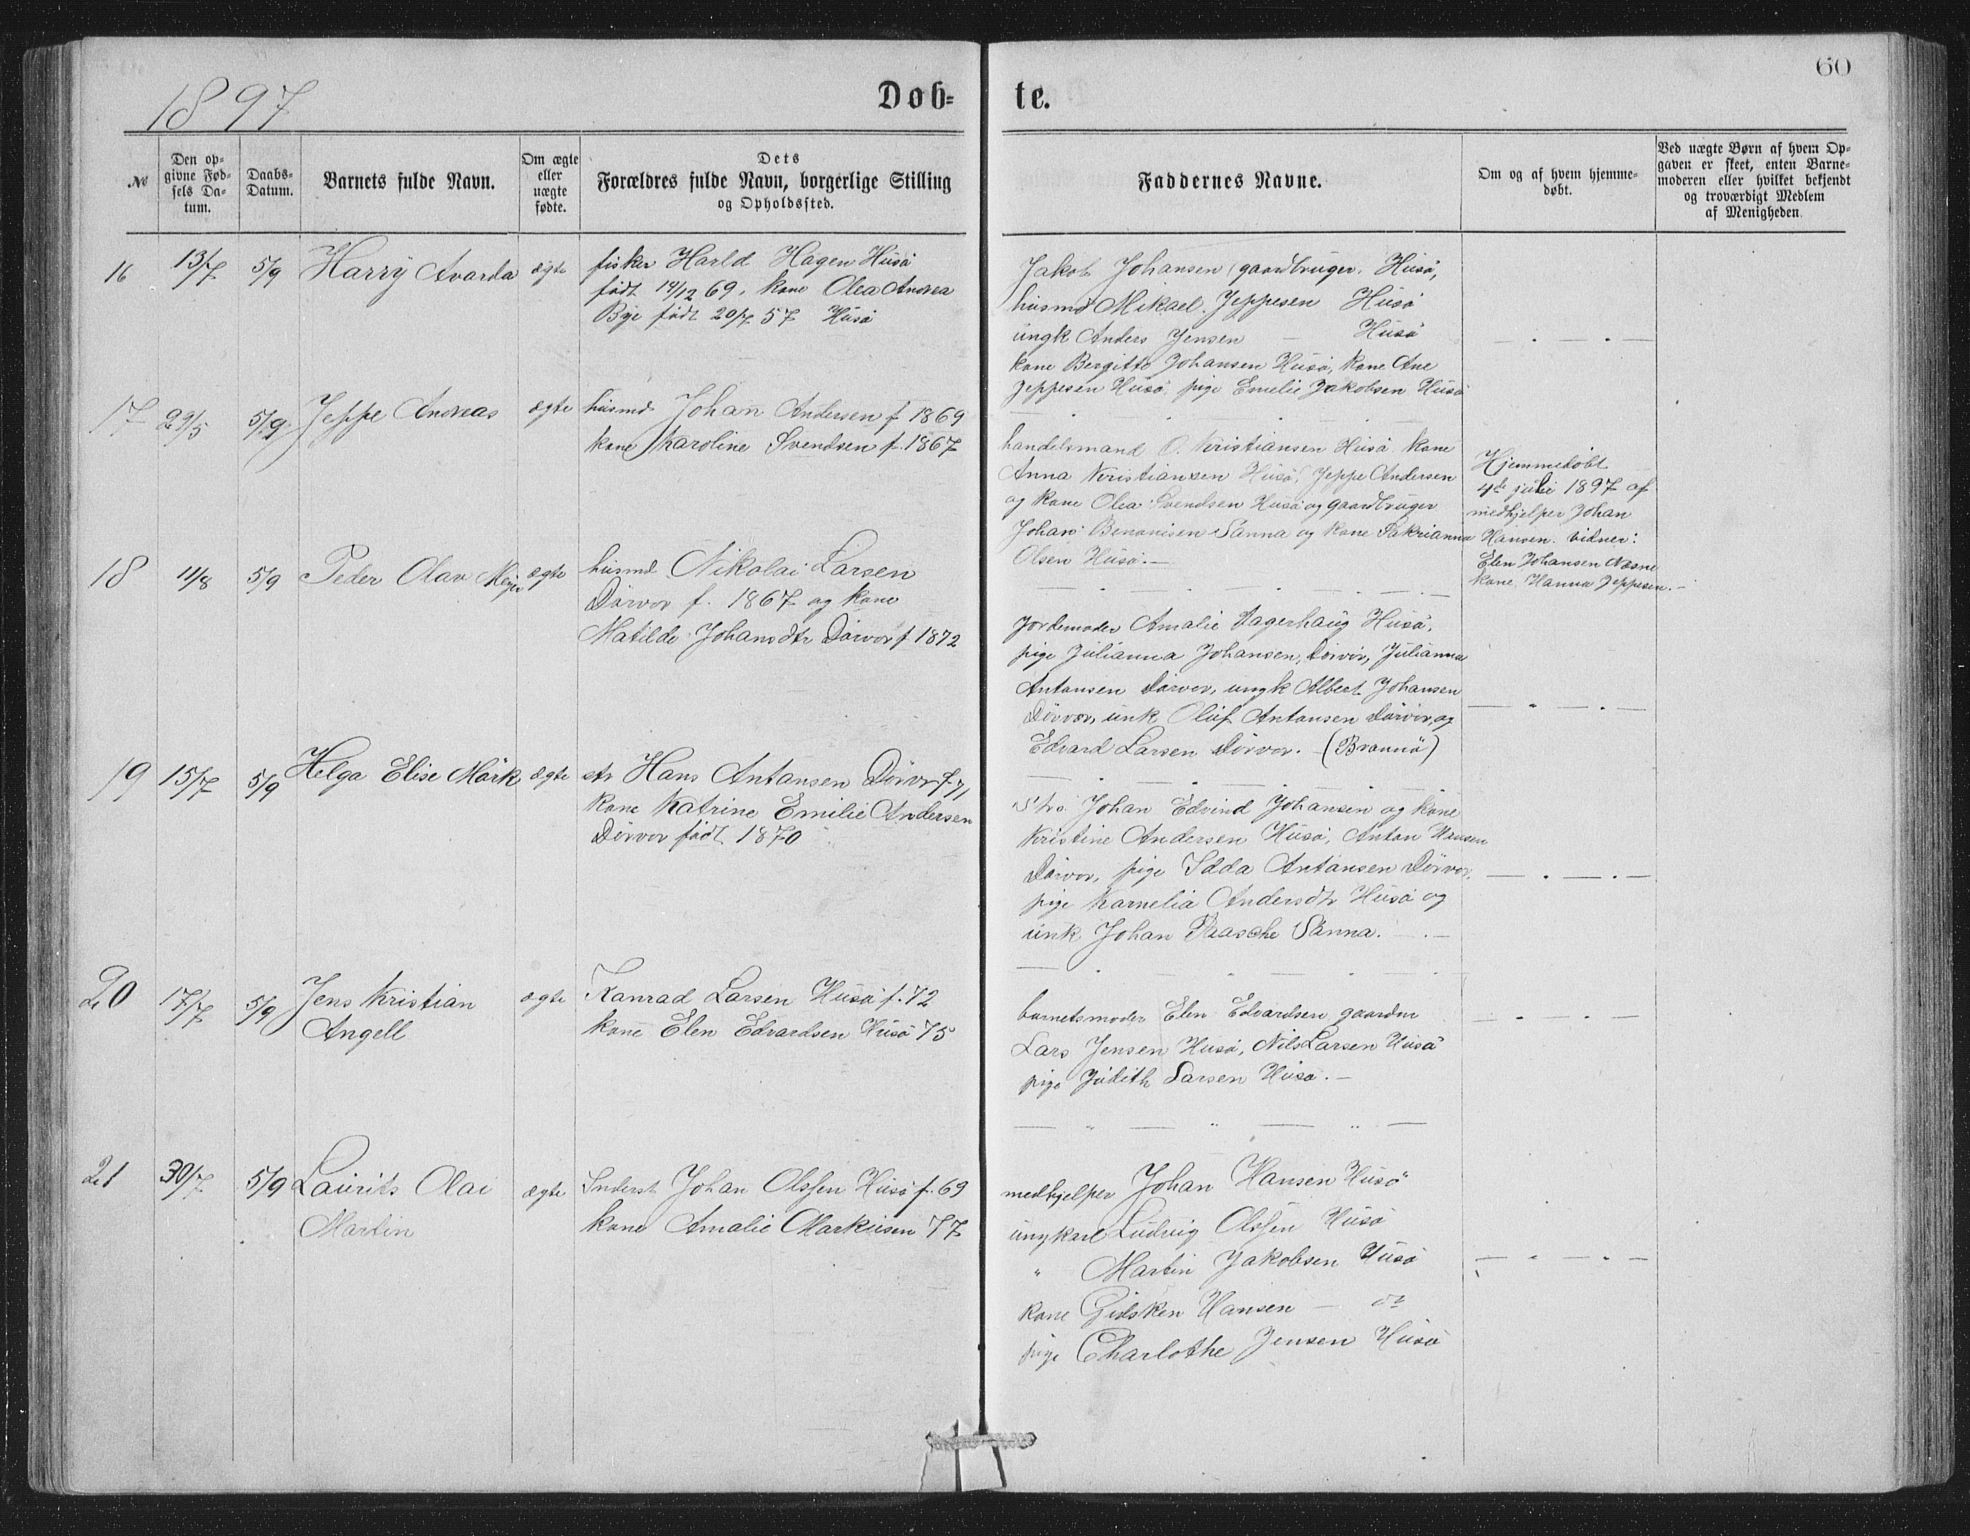 1897
Døb-
te.
60
№
Den op-
givne Fød-
sels Da-
tum.
Daabs-
Datum.
Barnets fulde Navn.
Om ægte
eller
uægte
fødte.
Dets
Forældres fulde Navn, borgerlige Stilling
og Opholdssted.
Faddernes Navne.
Om og af hvem hjemme-
døbt.
Ved uægte Børn af hvem Op-
gaven er skeet, enten Barne-
moderen eller hvilket bekjendt
og troværdigt Medlem
af Menigheden.
16 13/7 5/9 Harry Avarda ægte
fisker Harld Hagen Husø
født 14/12 69. kone Olea Andrea
Bye født 20/7 57 Husø
Jakob Johansen gaardbruger. Husø,
husmd Mikael Jeppesen Husø
ungk Anders Jensen — Husø
kone Bergitte Johansen Husø, kone Ane
Jeppesen Husø, pige Emelie Jakobsen Husø
17 29/5 5/9 Jeppe Andreas ægte
husmd Johan Andersen f 1869
kone Karoline Svendsen f. 1867
handelsmand O. Kristiansen Husø kone
Anna Kristiansen Husø, Jeppe Andersen
og kone Olea Svendsen Husø og gaardbruger
Johan Benonisen Sanna og kone Sakrianna
Olsen Husø.—
Hjemmedøbt
4de juli 1897 af
medhjelper Johan
Hansen. vidner:
Elen Johansen Næsne
kone Hanna Jeppesen.—
18 11/8 5/9 Peder Olav Meyer ægte
husmd Nikolai Larsen
Dørvor f. 1867 og kone
Matilde Johansdtr Dørvor f 1872
Jordemoder Amalie Hagerhaug Husø,
pige Julianna Johansen, Dørvor, Julianna
Antonsen Dørvor, ungk Albert Johansen
Dørvor, unk Oluf Antonsen Dørvor, og
Edvard Larsen Dørvor. (Brannø)
19 15/7 5/9 Helga Elise Mørk ægte
str Hans Antonsen Dørvor f. 71
kone Katrine Emilie Andersen
Dørvor født 1870
Johan Edvind Johansen og kone
Kristine Andersen Husø, Anton Hansen
Dørvor, pige Idda Antonsen Dørvor.
pige Karnelia Andersdtr Husø og
unk Johan Paasche Sanna.
20 17/7 5/9 Jens Kristian
Angell
ægte
Konrad Larsen Husø f. 72
kone Elen Edvardsen Husø 75
barnets moder Elen Edvardsen gaardm
Lars Jensen Husø, Nils Larsen Husø
pige Judith Larsen Husø.—
21 30/7 5/9 Laurits Olai
Martin
ægte
Inderst Johan Olssen Husø f. 69
kone Amalie Markusen 77
medhjelper Johan Hansen Husø
ungkarl Ludvig Olssen Husø
" Martin Jakobsen Husø
kone Gidsken Hansen — do
pige Charlothe Jensen Husø